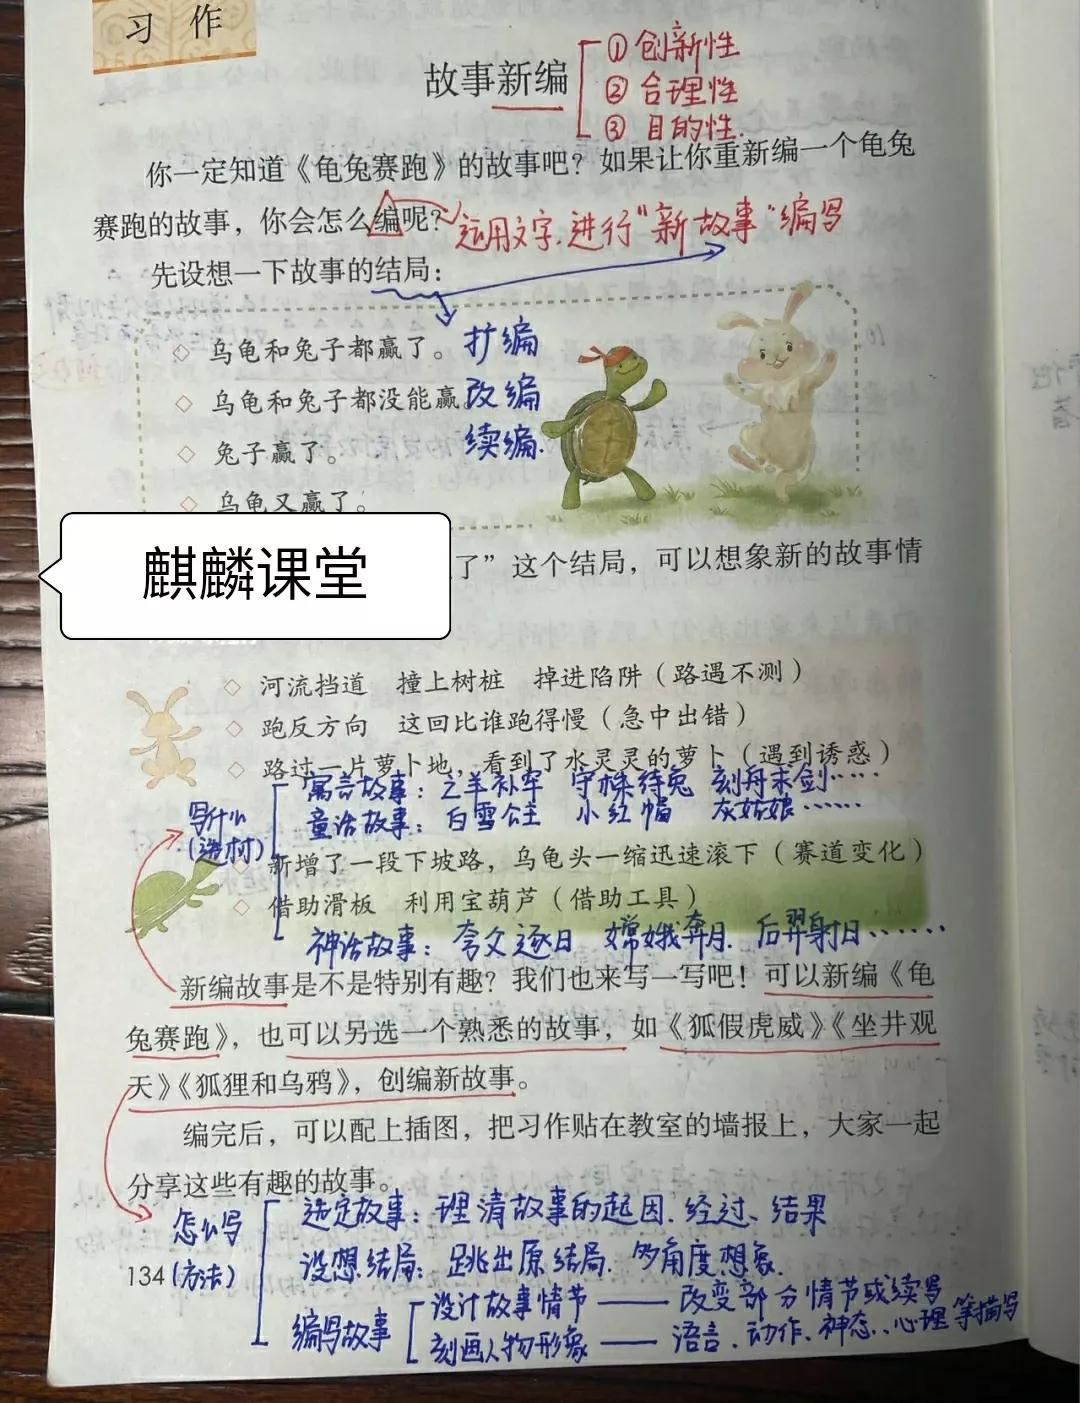 习作
故事新编
①创新性
②合理性
③目的性.
你一定知道《龟兔赛跑》的故事吧？如果让你重新编一个龟兔
赛跑的故事，你会怎么编呢？
运用文字.进行"新故事"编写
先设想一下故事的结局：
乌龟和兔子都赢了。
扩编
乌龟和兔子都没能赢。
改编
兔子赢了。
续编.
乌龟又赢了。
麒麟课堂
了”这个结局，可以想象新的故事情
河流挡道 撞上树桩 掉进陷阱（路遇不测）
跑反方向 这回比谁跑得慢（急中出错）
路过一片萝卜地，看到了水灵灵的萝卜（遇到诱惑）
写什么
(选材)
寓言故事：亡羊补牢 守株待兔 刻舟求剑……
童话故事：白雪公主 小红帽 灰姑娘……
新增了一段下坡路，乌龟头一缩迅速滚下（赛道变化）
借助滑板 利用宝葫芦（借助工具）
神话故事：夸父逐日 嫦娥奔月. 后羿射日……
新编故事是不是特别有趣？我们也来写一写吧！可以新编《龟
兔赛跑》，也可以另选一个熟悉的故事，如《狐假虎威》《坐井观
天》《狐狸和乌鸦》，创编新故事。
编完后，可以配上插图，把习作贴在教室的墙报上，大家一起
分享这些有趣的故事。
怎么写
(方法)
选定故事：理清故事的起因、经过、结果
设想结局：跳出原结局.多角度想象.
编写故事
设计故事情节——改变部分情节或续写
刻画人物形象——语言、动作、神态、心理等描写
134